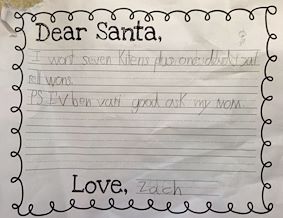 Dear Santa,
I wont seven Kitens plus one
rell wons.
PS I'V ben vary good ask my Mom.
Love, Zach